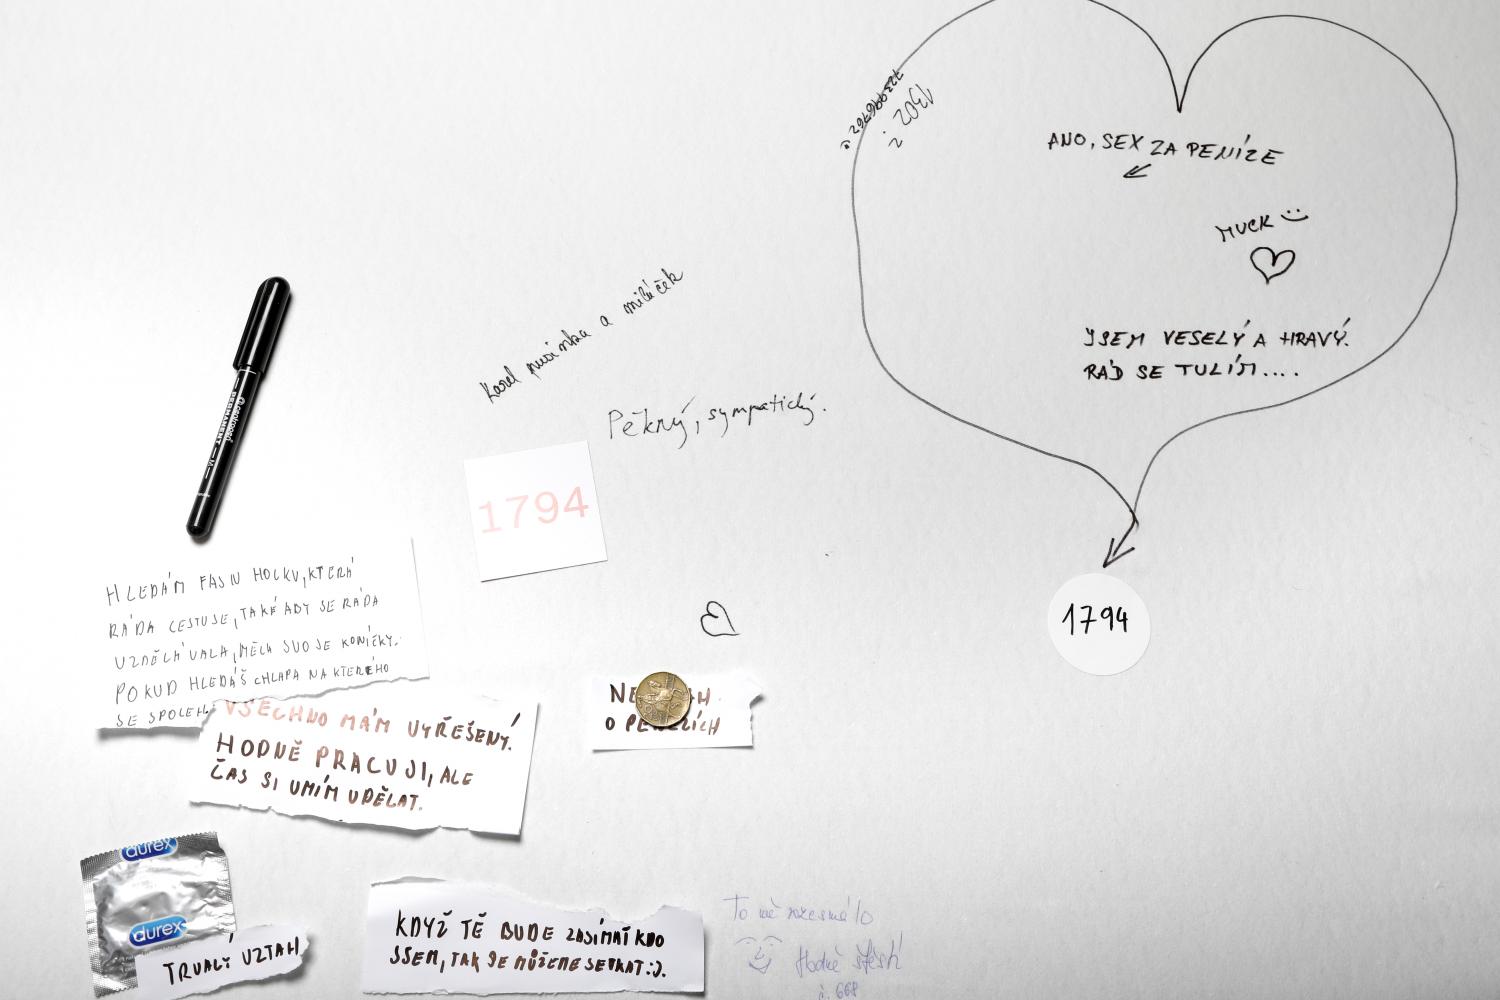 ANO, SEX ZA PENÍZE
MUCK
JSEM VESELÝ A HRAVÝ.
RÁD SE TULÍM....
1794
Karel a miláček
Pěkný, sympatický.
centropen
PERMANENT
M
1794
HLEDÁM FAJN HOLKU, KTERÁ
RÁDA CESTUJE, TAKÉ ABY SE RÁDA
VZDĚLÁVALA, MĚLA SVOJE KONÍČKY.
POKUD HLEDÁŠ CHLAPA NA KTERÉHO
SE SPOLEH
VŠECHNO MÁM VYŘEŠENÝ.
HODNĚ PRACUJI, ALE
ČAS SI UMÍM UDĚLAT.
NE H
O PENEZÍCH
durex
durex
TRVALÝ VZTAH
KDYŽ TĚ BUDE ZAJÍMAT KDO
JSEM, TAK SE MŮŽEME SETKAT:).
To mě rozesmálo
Hodně štěstí
č. 668